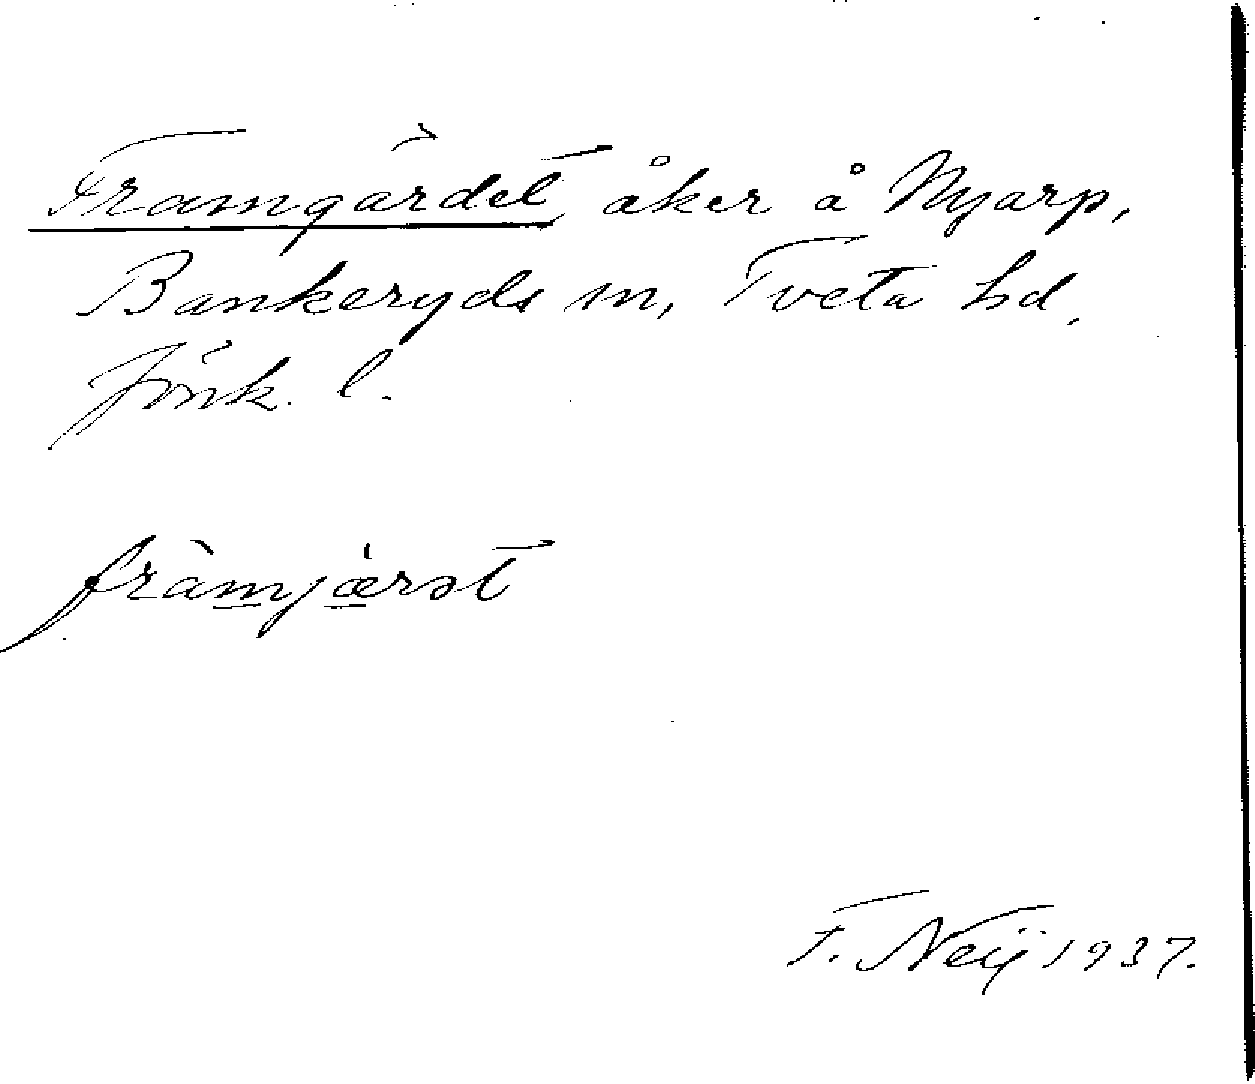 Framgärdet, åker å Nyarp,
Bankeryds sn, Tveta hd,
Jönk. l.
fràmjæ̀rət
F. Neij 1937.